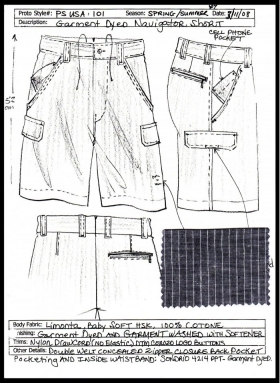 Proto Style#: PS USA: 101 Season: SPRING/SUMMER 09 Date: 8/11/08
Description: Garment Dyed Navigator Short
CELL PHONE
POCKET
Body Fabric: Limonta, Baby SOFT HSK, 100% COTONE
Finishing: Garment Dyed and GARMENT WASHED WITH SOFTENER
Trims: Nylon DrawCord (no Elastic) DTM COROZO LOGO BUTTONS
Other Details: Double Welt CONCEALED Zipper CLOSURE BACK POCKET
POCKETING AND INSIDE WAISTBAND: SONDRIO 4214 PPT- GARMENT DYED.